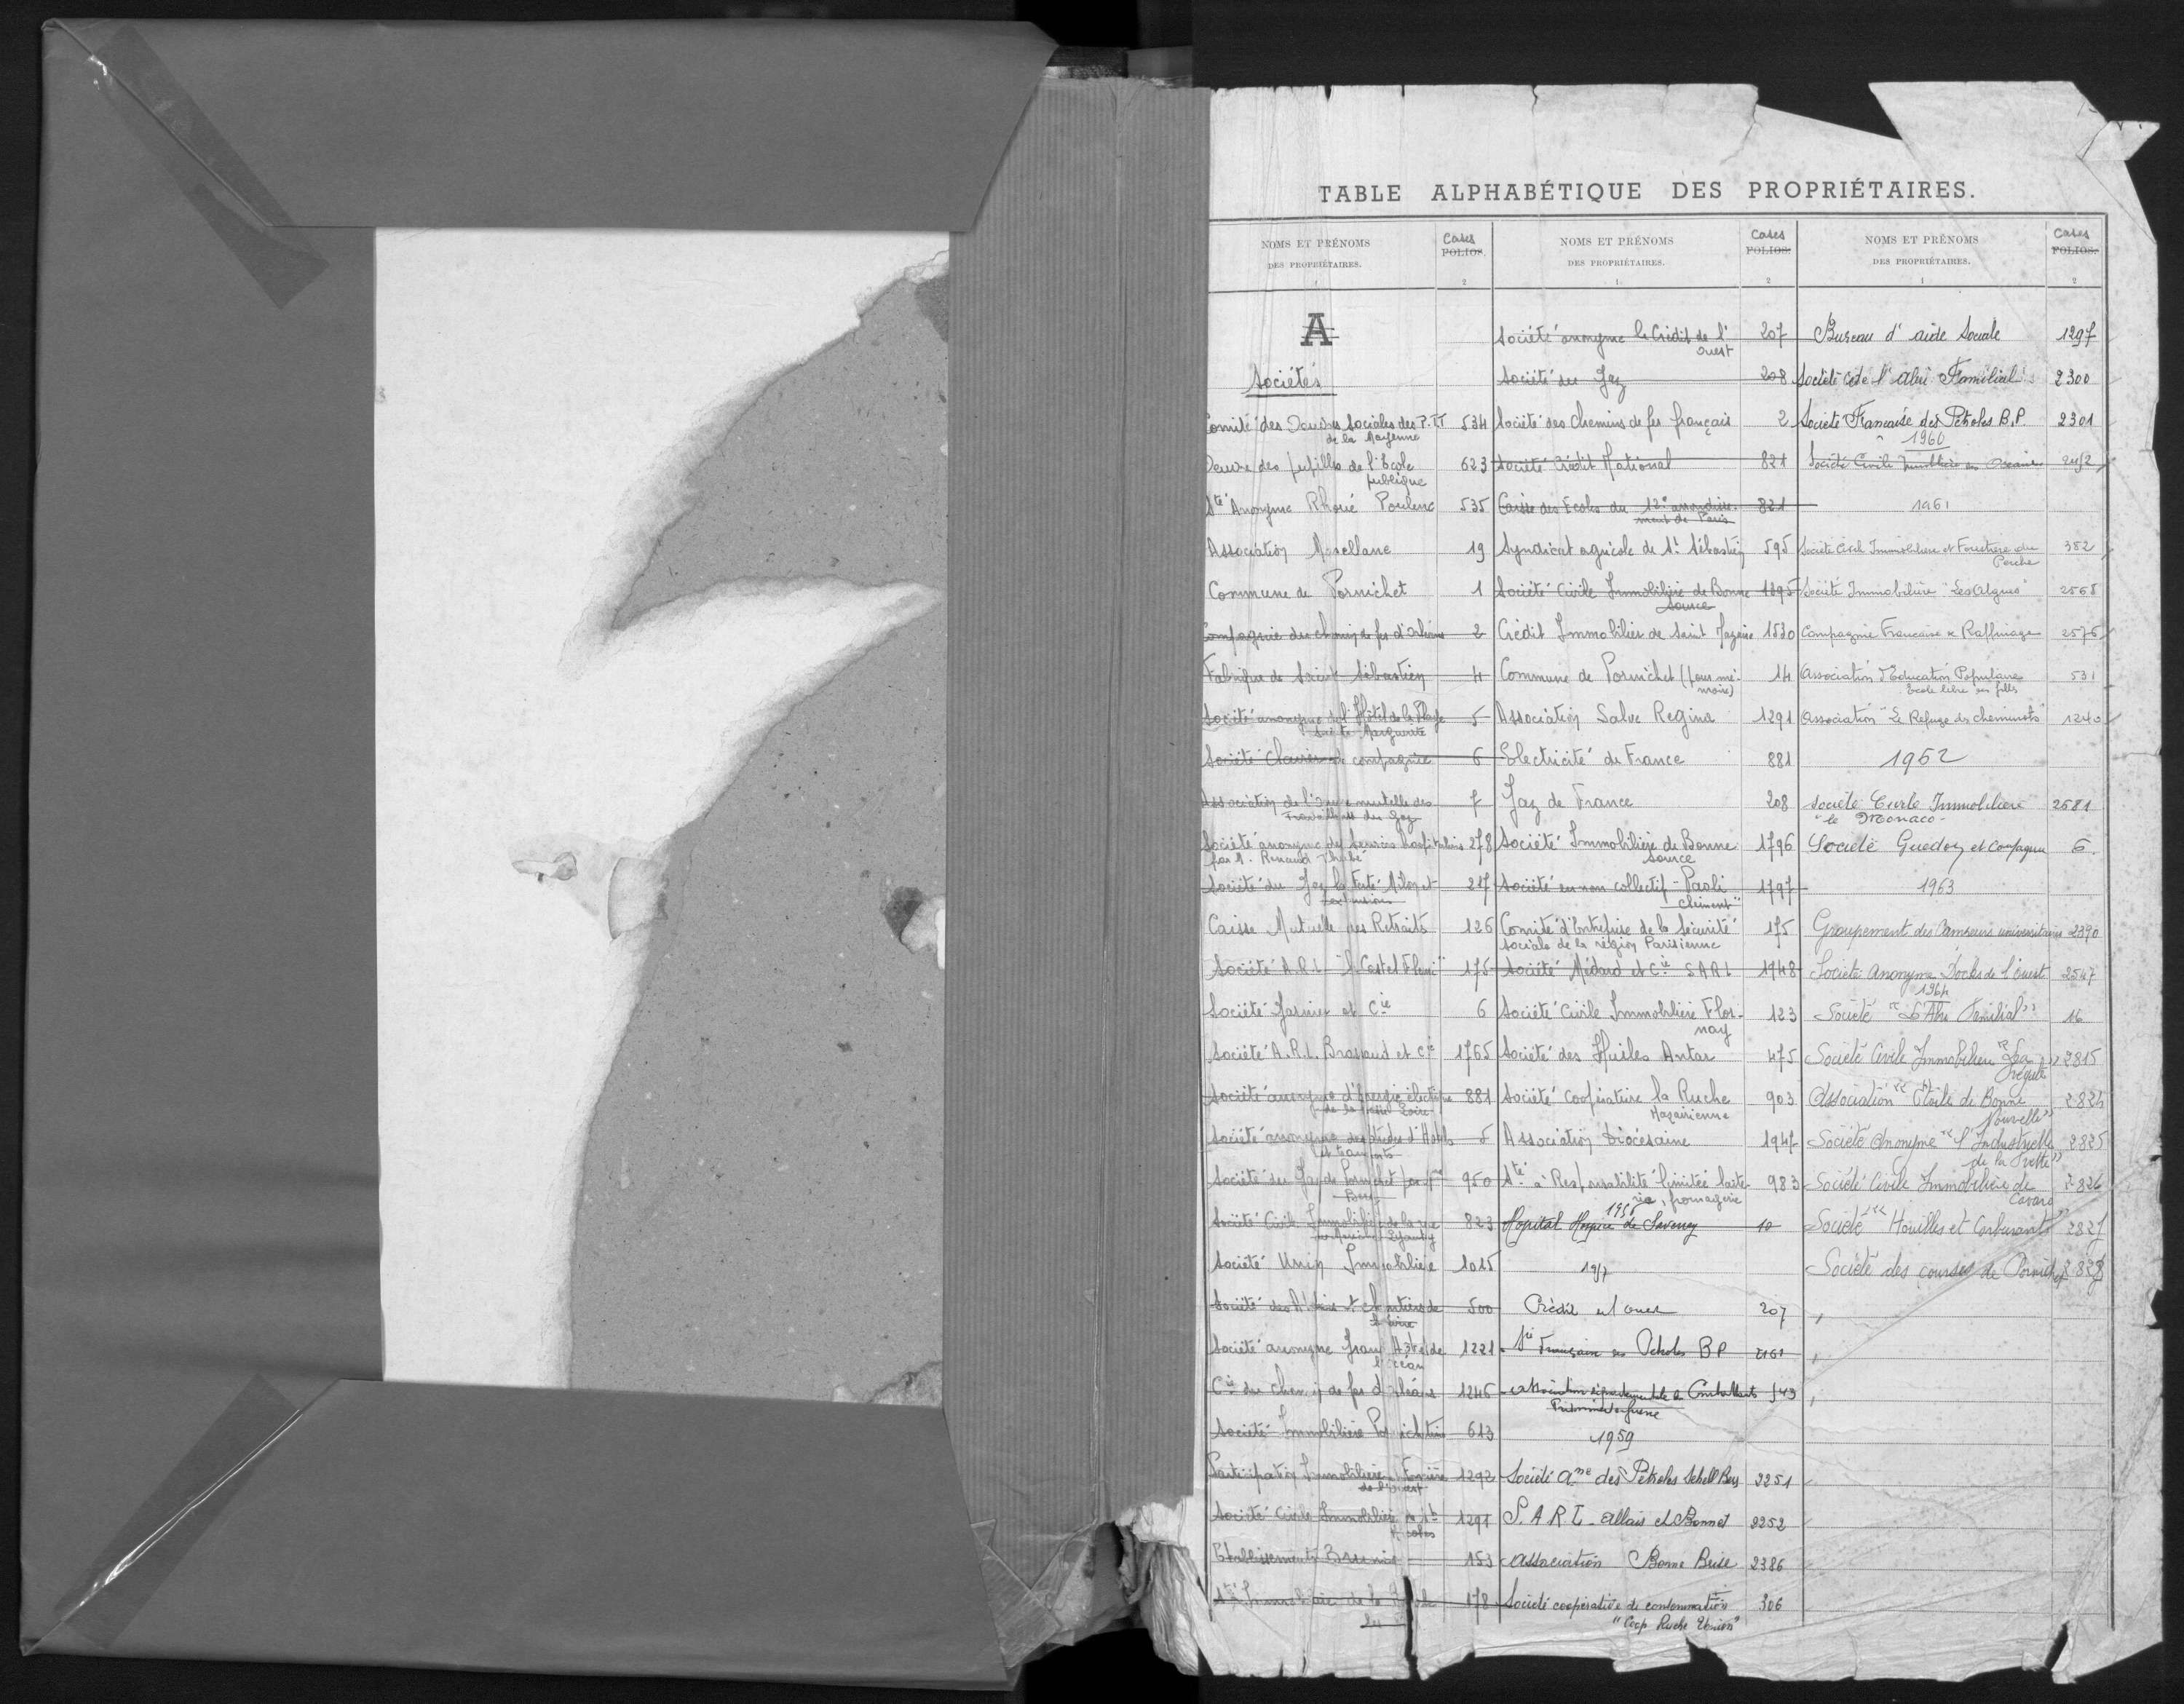 TABLE ALPHABÉTIQUE DES PROPRIÉTAIRES.
NOMS ET PRÉNOMS
DES PROPRIÉTAIRES.
Cases
FOLIOS.
1
2
A
Sociétés
Comité des Oeuvres Sociales des P.TT 534
de la Mayenne
Oeuvre des pupilles de l'Ecole 623
publique
Sté Anonyme Rhoné Poulenc 535
Association Mosellane 19
Commune de Pornichet 1
Compagnie du chemin de fer d'Orléans 2
Fabrique de Saint Sébastien 4
Société anonyme de l'Hôtel de la Plage 5
Sainte Marguerite
Société et compagnie 6
Association de l' mutuelle des 7
Travailleurs du Gaz
Société anonyme des Services hospitaliers 278
par M. Renaud
Société du Gaz la Ferté Milon et 217
extensions
Caisse Mutuelle des Retraits 126
Société A.R.L. "le Castel Fleuri" 175
Société Garnier et Cie 6
Société A.R.L. Brossaud et Cie 1765
Société anonyme d'énergie électrique 881
de la Loire
Société anonyme des études d'Hôtels 5
et transports
Société du Gaz de Pornichet 950
Société Civile Immobilière de la rue 823
Société Union Immobilière 1015
Société des Ateliers et chantiers de 500
la Loire
Société anonyme Grand Hôtel de 1221
l'Océan
Cie du chemin de fer d'Orléans 1246
Société Immobilière Pornichetine 613
Participation Immobilière 1292
de l'ouest
Société Civile Immobilière 1291
Etablissements 153
Sté Immobilière de la 178
NOMS ET PRÉNOMS
DES PROPRIÉTAIRES.
Cases
FOLIOS.
1
2
Société anonyme le Crédit de l' 207
Ouest
Société du Gaz 208
Société des Chemins de fer français 2
Société Crédit National 821
Caisse des Ecoles du 12e arrondisse- 821
ment de Paris
Syndicat agricole de St Sébastien 595
Société Civile Immobilière de Bonne 1895
Source
Crédit Immobilier de Saint Nazaire 1530
Commune de Pornichet (pour mé- 14
moire)
Association Salve Regina 1291
Electricité de France 881
Gaz de France 208
Société Immobilière de Bonne 1796
Source
Société en nom collectif "Paoli 1797
Clément"
Comité d'Entreprise de la Sécurité 175
sociale de la région Parisienne
Société Médard et Cie SARL 1948
Société Civile Immobilière Flor- 123
nay
Société des Huiles Antar 475
Société Coopérative la Ruche 903
Nazairienne
Association Diocésaine 1947
Sté à Responsabilité limitée laite- 983
rie, fromagerie
1956
Hôpital Hospice de Savenay 10
1957
Crédit de l'ouest 207
Sté Française des Pétroles BP 2161
Association départementale de Combattants 543
Prisonniers de guerre
1959
Société Ame des Pétroles Schell Berre 2251
S.A.R.L. Allais et Bonnet 2252
Association Bonne Brise 2386
Société coopérative de consommation 306
"Coop Ruche Union"
NOMS ET PRÉNOMS
DES PROPRIÉTAIRES.
Cases
FOLIOS.
1
2
Bureau d'aide Sociale 1297
Société Cité l'Abri Familial 2300
Société Française des Pétroles B.P. 2301
1960
Société Civile Immobilière 2452
1961
Société Civile Immobilière et Forestière du 382
Perche
Société Immobilière "Les Algues" 2568
Compagnie Française de Raffinage 2576
Association d'Education Populaire 531
Ecole libre des filles
Association "Le Refuge des cheminots" 1240
1962
Société Civile Immobilière 2681
"le Monaco"
Société Guedon et Compagnie 6
1963
Groupement des Campeurs universitaires 2370
Société Anonyme Docks de l'Ouest 2547
1964
Société "L'Abri Familial" 16
Société Civile Immobilière "La 2815
Frégate"
Association "Etoile de Bonne 2824
Nouvelle"
Société Anonyme "l'Industrielle 2825
de la Frette"
Société Civile Immobilière de 2826
Cavaro
Société "Houilles et Carburants" 2827
Société des courses de Pornichet 2828